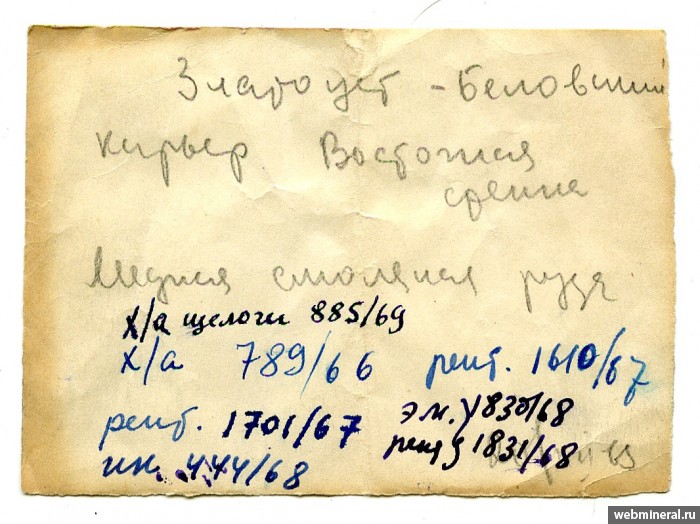 Златоуст - Беловский
карьер Восточная
стенка
Медная смоляная руда
х/а щелочи 885/69
х/а 789/66 рент. 1610/67
рент. 1701/67 эм. 1830/68
рент 1831/68
ик. 444/68
webmineral.ru